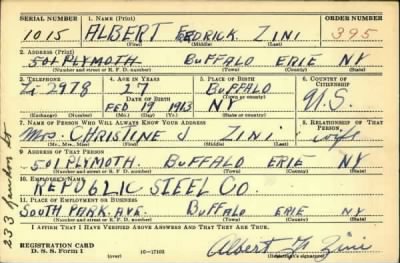 SERIAL NUMBER 1. NAME (Print) ORDER NUMBER
1015 ALBERT FEDRICK ZINI 395
(First) (Middle) (Last)
2. ADDRESS (Print)
501 PLYMOTH BUFFALO ERIE NY
(Number and street or R. F. D. number) (Town) (County) (State)
3. TELEPHONE 4. AGE IN YEARS 5. PLACE OF BIRTH 6. COUNTRY OF CITIZENSHIP
2978 27 BUFFALO
DATE OF BIRTH (Town or county)
FEB 19 1913 NY U.S.
(Exchange) (Number) (Mo.) (Day) (Yr.) (State or country)
7. NAME OF PERSON WHO WILL ALWAYS KNOW YOUR ADDRESS 8. RELATIONSHIP OF THAT PERSON
Mrs. CHRISTINE J ZINI wife
(Mr., Mrs., Miss) (First) (Middle) (Last)
9. ADDRESS OF THAT PERSON
501 PLYMOTH. BUFFALO ERIE NY
(Number and street or R. F. D. number) (Town) (County) (State)
10. EMPLOYER'S NAME
REPUBLIC STEEL CO.
11. PLACE OF EMPLOYMENT OR BUSINESS
SOUTH PARK AVE. BUFFALO ERIE NY
(Number and street or R. F. D. number) (Town) (County) (State)
I AFFIRM THAT I HAVE VERIFIED ABOVE ANSWERS AND THAT THEY ARE TRUE.
REGISTRATION CARD
D. S. S. Form 1 (over) 16—17105 Albert F. Zini
(Registrant's signature)
233